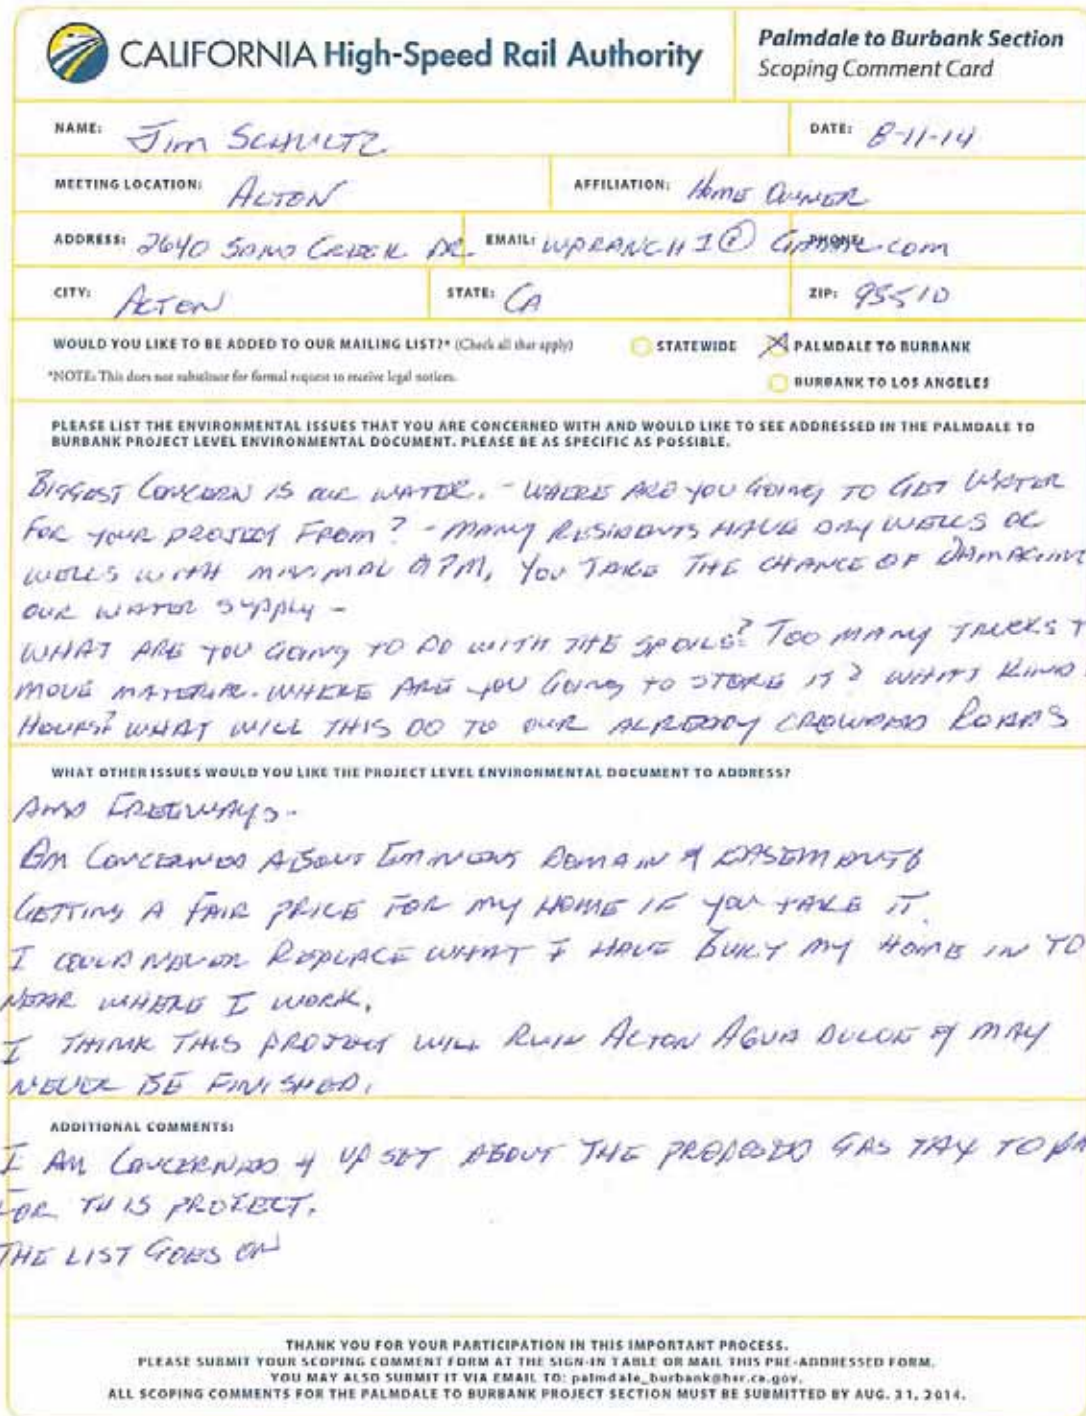 CALIFORNIA High-Speed Rail Authority
Palmdale to Burbank Section
Scoping Comment Card
NAME: Jim SCHULTZ
DATE: 8-11-14
MEETING LOCATION: ACTON
AFFILIATION: Home OWNER
ADDRESS: 2640 SAND CREEK DR.
EMAIL: WPRANCH1@GMAIL.com
PHONE:
CITY: ACTON
STATE: CA
ZIP: 93510
WOULD YOU LIKE TO BE ADDED TO OUR MAILING LIST?* (Check all that apply)
STATEWIDE
PALMDALE TO BURBANK
*NOTE: This does not substitute for formal request to receive legal notices.
BURBANK TO LOS ANGELES
PLEASE LIST THE ENVIRONMENTAL ISSUES THAT YOU ARE CONCERNED WITH AND WOULD LIKE TO SEE ADDRESSED IN THE PALMDALE TO
BURBANK PROJECT LEVEL ENVIRONMENTAL DOCUMENT. PLEASE BE AS SPECIFIC AS POSSIBLE.
BIGGEST CONCERN IS OUR WATER. - WHERE ARE YOU GOING TO GET WATER
FOR YOUR PROJECT FROM? - MANY RESIDENTS HAVE DRY WELLS OR
WELLS WITH MINIMAL GPM, YOU TAKE THE CHANCE OF DAMAGING
OUR WATER SUPPLY -
WHAT ARE YOU GOING TO DO WITH THE SPOILS? TOO MANY TRUCKS T
MOVE MATERIAL. WHERE ARE YOU GOING TO STORE IT? WHATS KIND
HOURS? WHAT WILL THIS DO TO OUR ALREADY CROWDED ROADS
WHAT OTHER ISSUES WOULD YOU LIKE THE PROJECT LEVEL ENVIRONMENTAL DOCUMENT TO ADDRESS?
AND FREEWAYS-
AM CONCERNED ABOUT EMINENT DOMAIN & EASEMENTS
GETTING A FAIR PRICE FOR MY HOME IF YOU TAKE IT.
I COULD NEVER REPLACE WHAT I HAVE BUILT MY HOME IN TO
NEAR WHERE I WORK.
I THINK THIS PROJECT WILL RUIN ACTON AGUA DULCE & MAY
NEVER BE FINISHED.
ADDITIONAL COMMENTS:
I AM CONCERNED & UPSET ABOUT THE PROPOSED GAS TAX TO PA
FOR THIS PROJECT.
THE LIST GOES ON
THANK YOU FOR YOUR PARTICIPATION IN THIS IMPORTANT PROCESS.
PLEASE SUBMIT YOUR SCOPING COMMENT FORM AT THE SIGN-IN TABLE OR MAIL THIS PRE-ADDRESSED FORM.
YOU MAY ALSO SUBMIT IT VIA EMAIL TO: palmdale_burbank@hsr.ca.gov.
ALL SCOPING COMMENTS FOR THE PALMDALE TO BURBANK PROJECT SECTION MUST BE SUBMITTED BY AUG. 31, 2014.